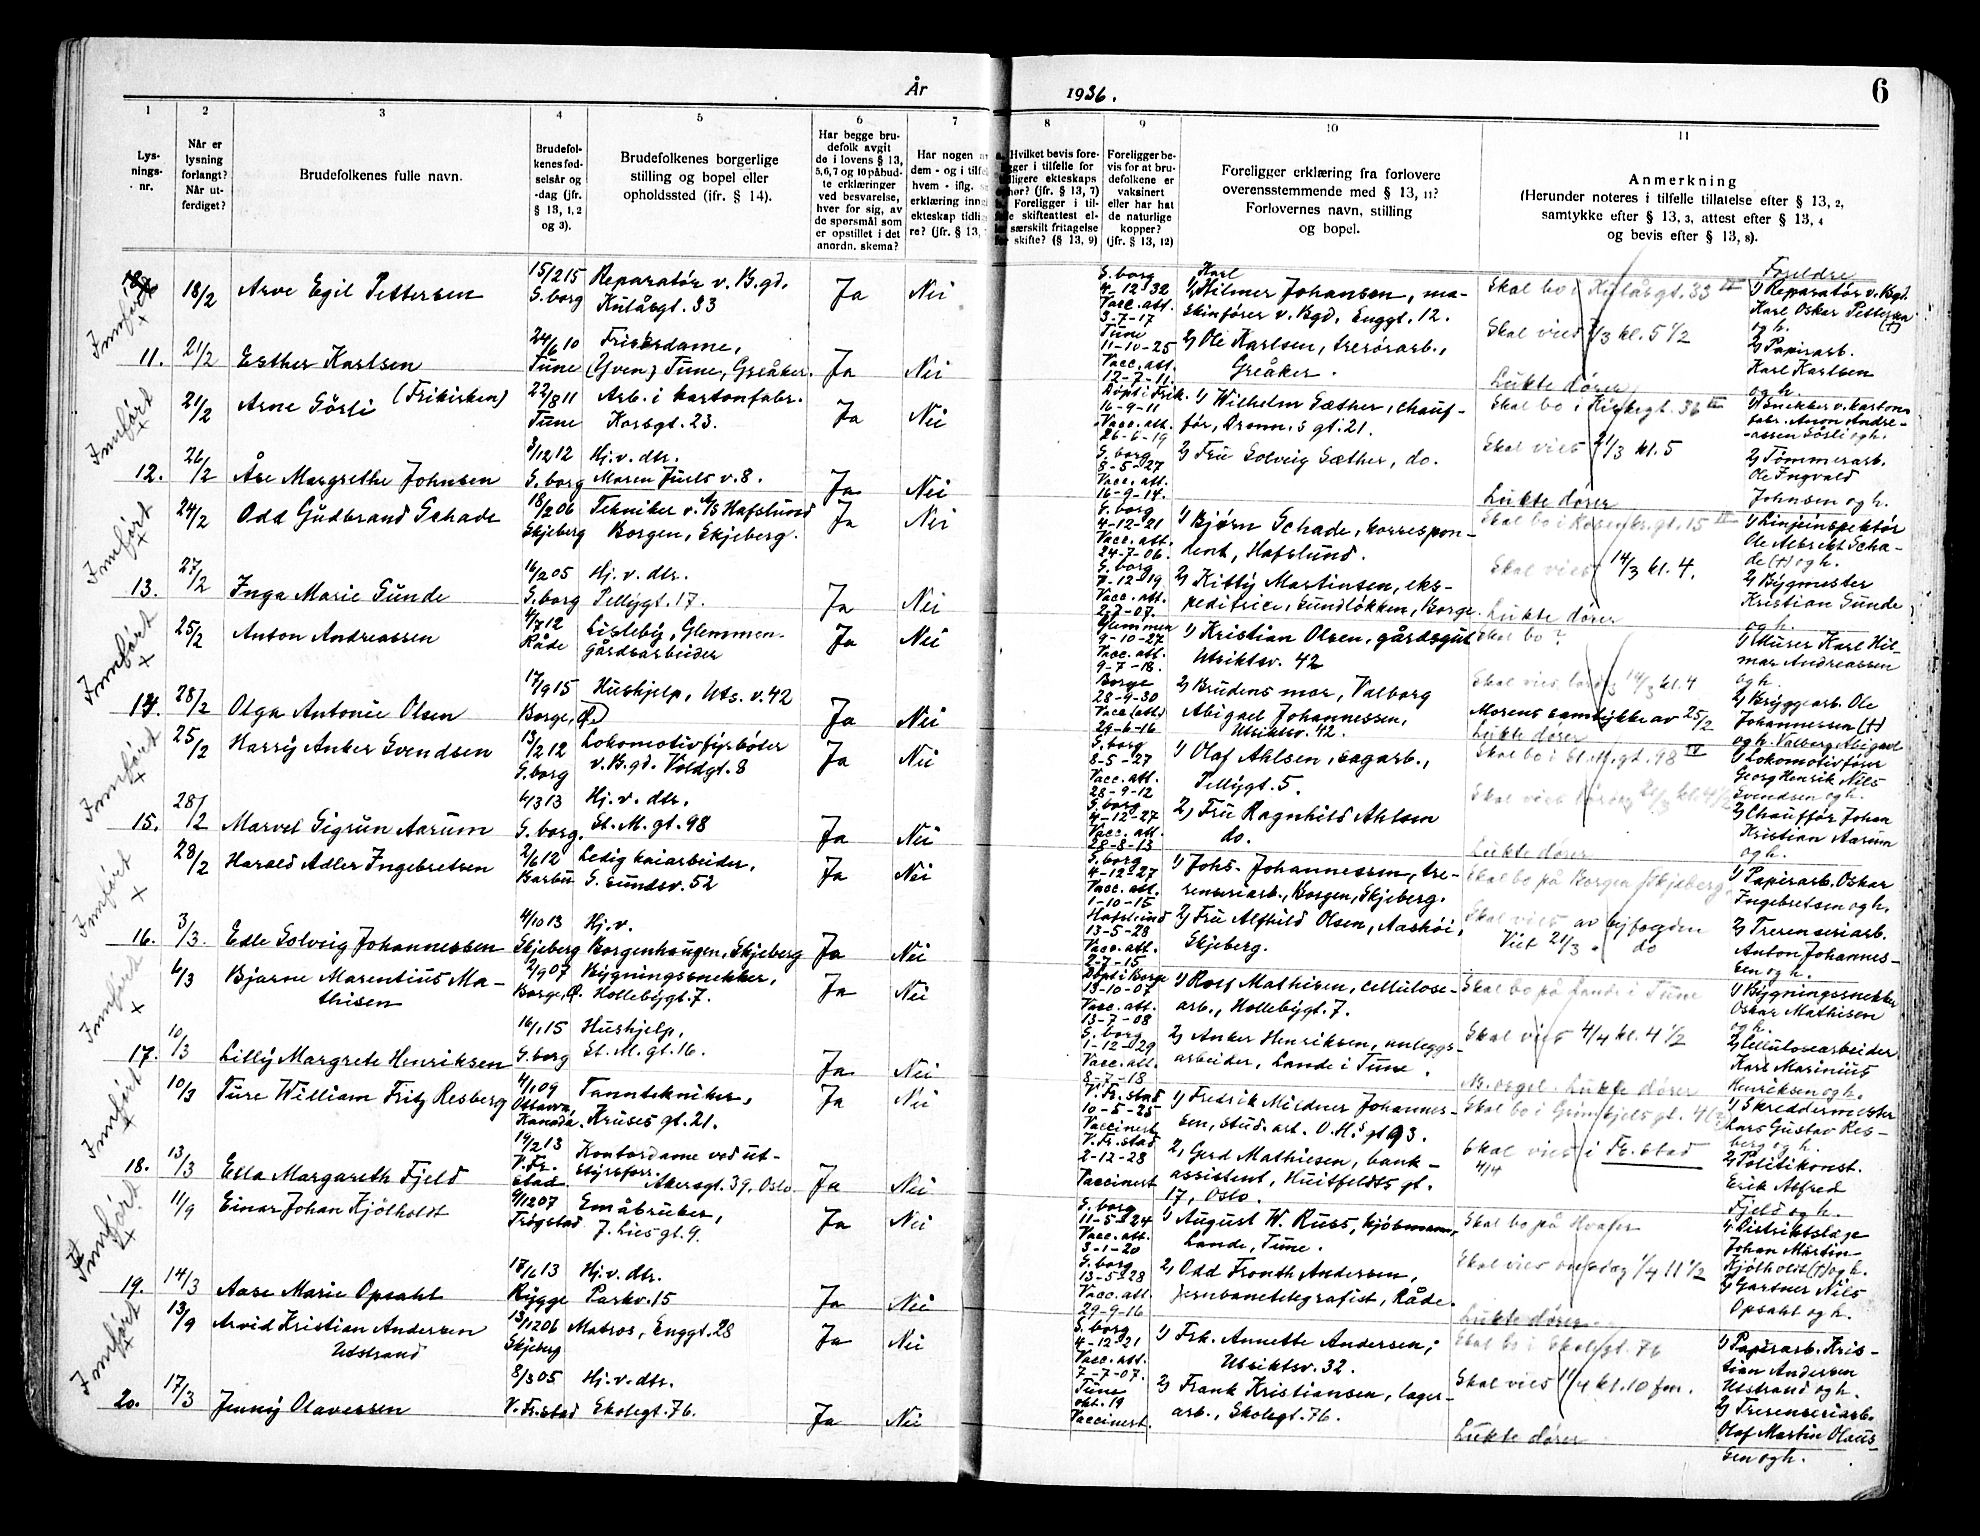 År 1936.
6
1 2 3 4 5 6 7 8 9 10 11
Lys-
nings-
nr.
Når er
lysning
forlangt?
Når ut-
ferdiget?
Brudefolkenes fulle navn.
Brudefol-
kenes fød-
selsår og
-dag (jfr.
§ 13, 1, 2
og 3).
Brudefolkenes borgerlige
stilling og bopel eller
opholdssted (ifr. § 14).
Har begge bru-
defolk avgit
de i lovens § 13,
5,6,7 og 10 påbud-
te erklæringer
ved besvarelse,
hver for sig, av
de spørsmål som
er opstillet i det
anordn. skema?
Har nogen
dem - og i tilf
hvem - iflg.
erklæring inn
ekteskap tidli
re? (jfr. § 13,
Hvilket bevis fore-
ligger i tilfelle for
tidligere ekteskaps
ophør? (jfr. § 13, 7)
Foreligger i til-
felle skifteattest el-
ler særskilt fritagelse
for skifte? (§ 13, 9)
Foreligger be-
vis for at bru-
defolkene er
vaksinert
eller har hat
de naturlige
kopper?
(jfr. § 13, 12)
Foreligger erklæring fra forlovere
overensstemmende med § 13, 11?
Forlovernes navn, stilling
og bopel.
Anmerkning
(Herunder noteres i tilfelle tillatelse efter § 13, 2,
samtykke efter § 13, 3, attest efter § 13, 4
og bevis efter § 13, 8).
Innført x
11.
18/2
Arve Egil Pettersen
15/2 15
S. borg
Reparatør v. B.gd.
Kulåsgt. 33
Ja Nei
S. borg
4-12-32
Vacc. att.
3-7-17
Karl
1) Hilmer Johansen, ma-
skinfører v. Bgd. Enggt. 12.
Skal bo i Kulåsgt. 33 IV
Skal vies 7/3 kl. 5 1/2
Foreldre
1) Reparatør v. Bgd.
Karl Oskar Pettersen (†)
og h.
21/2
Esther Karlsen
24/6 10
Tune
Frisørdame,
(Yven) Tune, Greåker.
Ja Nei
Tune
11-10-25
Vacc. att.
12-7-11.
2) Ole Karlsen, tresórarb.,
Greåker.
Lukte dører
2) Papirarb.
Karl Karlsen
og h.
Innført x
12.
21/2
Arne Sørli (Frikirken)
22/8 11
Tune
Arb. i kartonfabr.
Korsgt. 23.
Ja Nei
Døpt i Frik.
16-9-11
Vacc. att.
26-6-19
1) Wilhelm Sæther, chauf-
før, Dronn.s gt. 21.
Skal bo i Kirkegt. 36 IV
Skal vies 21/3 kl. 5
1) Snekker v. karton-
fabr. Anon Andre-
assen Sørli og h.
26/2
Åse Margrethe Johnsen
3/12 12
S. borg
Hj. v. dtr.
Maren Juels v. 8.
Ja Nei
S. borg
8-5-27
Vacc. att.
16-9-14.
2) Fru Solveig Sæther, do.
Lukte dører
2) Tømmerarb.
Ole Ingvald
Johnsen og h.
Innført x
13.
24/2
Odd Gudbrand Schade
18/2 06
Skjeberg
Tekniker v. A/S Hafslund
Borgen, Skjeberg.
Ja Nei
S. borg
4-12-21
Vacc. att.
24-7-06.
1) Bjørn Schade, korrespon-
dent, Hafslund.
Skal bo i Rosenkr.gt. 15 II
Skal vies 14/3 kl. 4.
1) Linjeinspektør
Ole Albrekt Scha-
de (†) og h.
27/2
Inga Marie Gunde
S. borg
Hj. v. dtr.
Pellygt. 17.
Ja Nei
S. borg
7-12-19
Vacc. att.
2-7-07.
2) Kitty Martinsen, eks-
peditrice, Sundløkken, Borge.
Lukte dører
2) Bygmester
Kristian Gunde
og h.
Innført x
14.
25/2
Anton Andreassen
4/7 12
Råde
Lisleby, Glemmen.
Gårdsarbeider
Ja Nei
Glemmen
9-10-27
Vacc. att.
9-7-18.
1) Kristian Olsen, gårdsgut
Utsiktsv. 42
Skal bo?
Skal vies lørdag 14/3 kl. 4
1) Murer Karl Hil-
mar Andreassen
og h.
28/2
Olga Antonie Olsen
17/9 15
Borge, Ø.
Hushjelp, Uts. v. 42
Ja Nei
Borge
28-9-30
Vacc. (att.)
29-6-16
2) Brudens mor, Valborg
Abigael Johannessen,
Utsiktsv. 42.
Morens samtykke av 25/2
Lukte dører
2) Bryggearb. Ole
Johannessen (†)
og h. Valborg Abigael
Innført x
15.
25/2
Harry Anker Svendsen
13/2 12
S. borg
Lokomotivfyrbøter
v. B.gd. Voldgt. 8
Ja Nei
S. borg
8-5-27
Vacc. att.
28-9-12
1) Olaf Ahlsen, sagarb.,
Pellygt. 5.
Skal bo i St. M. gt. 98 IV
Skal vies lørdag 21/3 kl. 4 1/2
1) Lokomotivfører
Georg Henrik Nils
Svendsen og h.
28/2
Marvel Sigrun Aarum
4/3 13
S. borg.
Hj. v. dtr.
St. M. gt. 98
Ja Nei
S. borg
4-12-27
Vacc. att.
28-8-13
2) Fru Ragnhild Ahlsen
do.
Lukte dører
2) Chauffør Johan
Kristian Aarum
og h.
Innført x
16.
28/2
Harald Adler Ingebretsen
2/6 12
Barbu
Ledig kaiarbeider,
S. sundsv. 52
Ja Nei
S. borg
4-12-27
Vacc. att.
1-10-15
1) Johs. Johannessen, tre-
renseriarb., Borgen, Skjeberg.
Skal bo på Borgen, Skjeberg.
Skal vies av byfogden
Viet 21/3 " do
1) Papirarb. Oskar
Ingebretsen og h.
3/3.
Edle Solveig Johannessen
4/10 13
Skjeberg
Hj. v.
Borgenhaugen, Skjeberg
Ja Nei
Hafslund
13-5-28
Vacc. att.
2-7-15
2) Fru Alfhild Olsen, Aashøi,
Skjeberg.
2) Trerenseriarb.
Anton Johannes-
sen og h.
Innført x
17.
6/3
Bjarne Marentius Ma-
thisen
2/9 07
Borge, Ø.
Bygningssnekker,
Hollebygt. 7.
Ja Nei
Døpt i Borge
13-10-07
Vacc. att.
13-7-08
1) Rolf Mathisen, cellulose-
arb., Hollebygt. 7.
Skal bo på Lande i Tune
Skal vies 4/4 kl. 4 1/2
1) Bygningssnekker
Oskar Mathisen
og h.
10/3
Lilly Margrete Henriksen
16/1 15
S. borg
Hushjelp,
St. M. gt. 16.
Ja Nei
S. borg
1-12-29
Vacc. att.
8-7-18
2) Anker Henriksen, anleggs-
arbeider, Lande i Tune.
M. orgel. Lukte dører
2) Cellulosearbeider
Karl Marinius
Henriksen og h.
Innført x
18.
10/3
Ture William Fritz Resberg
4/1 09
Ottawa,
Kanada.
Tanntekniker,
Kruses gt. 21.
Ja Nei
V. Fr. stad
10-5-25
Vaccinert
1) Fredrik Mildner Johannes-
sen, stud. art. O. H.s gt 93.
Skal bo i Grimkjels gt. 4
Skal vies i Fr. stad
4/4
1) Skreddermester
Lars Gustav Res-
berg og h.
13/3
Ella Margareth Fjeld
19/2 13
V. Fr.
stad
Kontordame ved ut-
styrsforr. Akersgt. 39, Oslo
Ja Nei
V. Fr. stad
2-12-28
Vaccinert
2) Gerd Mathiesen, bank-
assistent, Huitfeldts gt.
17, Oslo.
2) Politikonst.
Erik Alfred
Fjeld og h.
Innført x
19.
11/9
Einar Johan Kjølholdt
9/12 07
Trøgstad
Småbruker,
J. Lies gt. 9.
Ja Nei
S. borg
11-5-24
Vacc. att.
3-1-20
1) August W. Russ, kjøbmann,
Lande, Tune.
Skal bo på Hvaler
Skal vies onsdag 1/4 11 1/2
1) Distriktslæge
Johan Martin
Kjølholdt (†) og h.
14/3
Aase Marie Opsahl
17/6 13
Rygge
Hj. v. dtr.
Parkv. 15
Ja Nei
S. borg
13-5-28
Vacc. att.
29-9-16
2) Odd Fronth Andersen,
jernbanetelegrafist, Råde.
Lukte dører
2) Gartner Nils
Opsahl og h.
Innført x
20.
13/9
Arvid Kristian Andersen
Utstrand
13/12 06
Skjeberg
Matros, Enggt. 28
Ja Nei
S. borg
4-12-21
Vacc. att.
7-7-07.
1) Frk. Annette Andersen,
Utsiktsv. 32.
Skal bo i Skolegt. 76
Skal vies 11/4 kl. 10 fm.
1) Papirarb. Kris-
tian Andersen
Utstrand og h.
17/3
Jenny Olavessen
8/3 05
V. Fr. stad
Hj. v. dtr.
Skolegt. 76.
Ja Nei
Tune
okt. 19
Vaccinert.
2) Frank Kristiansen, lager-
arb., Skolegt. 76.
Lukte dører
2) Treseneriarb.
Olaf Martin Olaus-
sen og h.